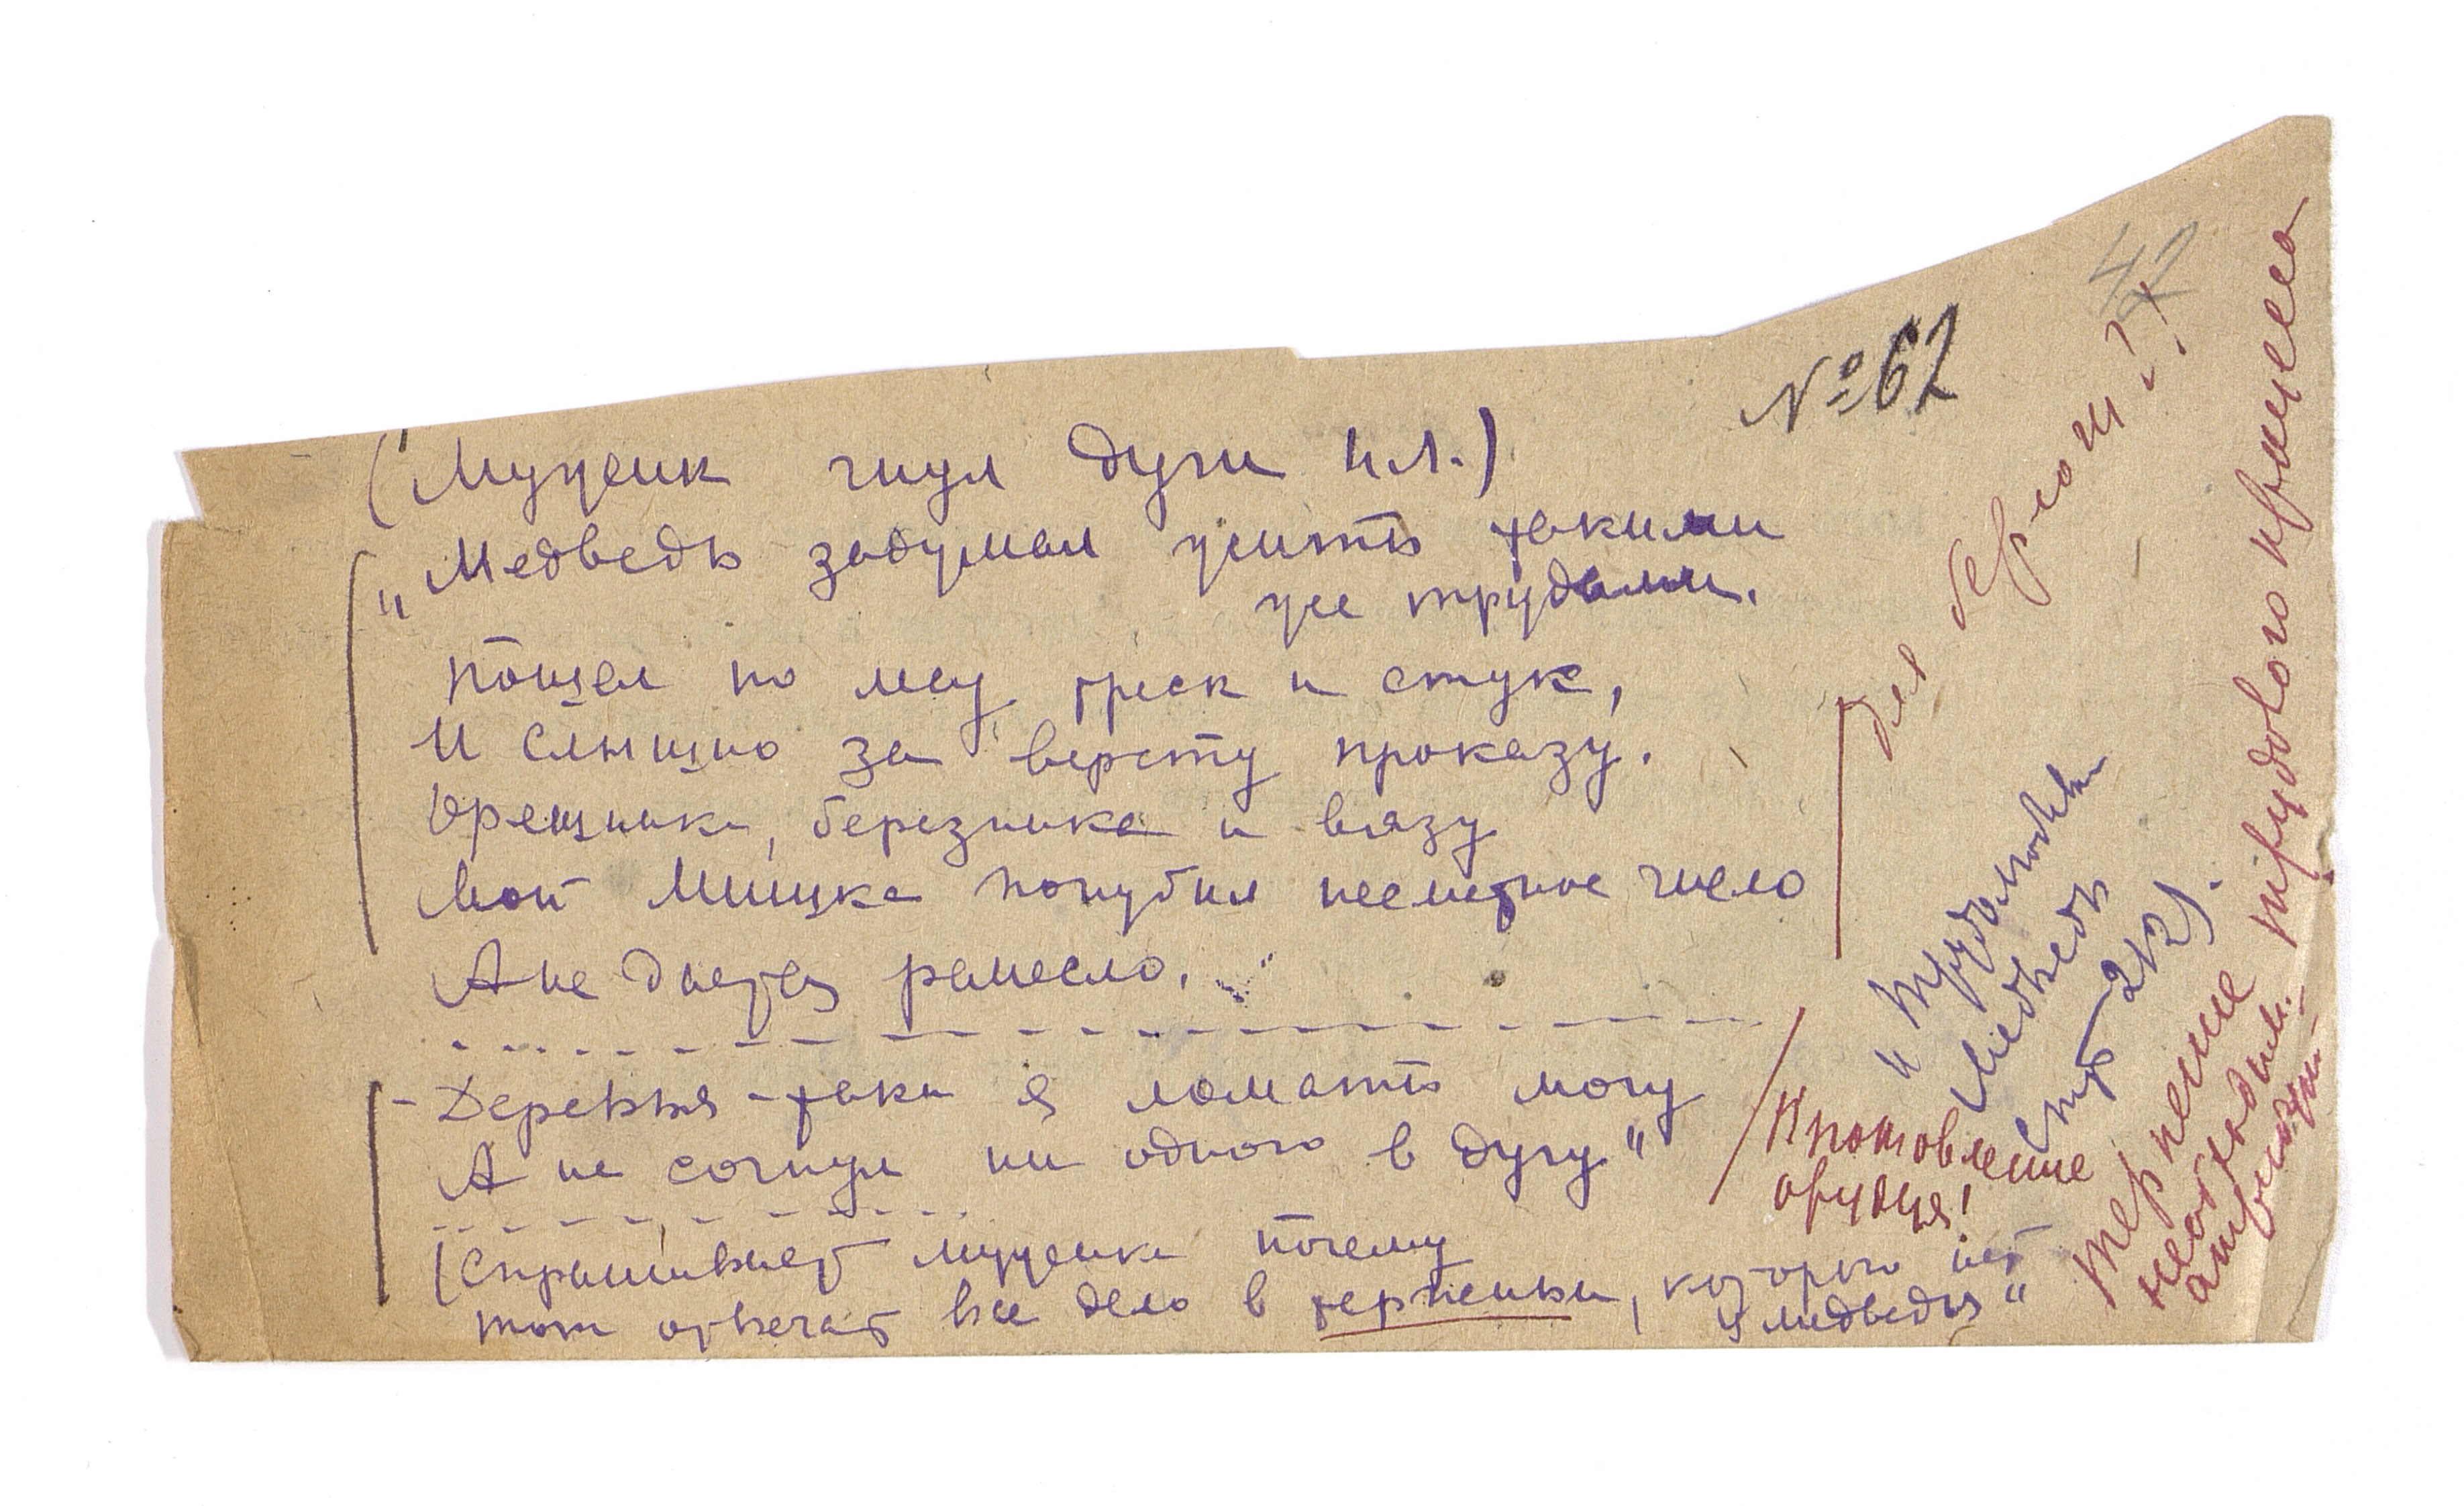 № 62
42
(Мужик гнул дуги и л.)
„Медведь задумал жить такими
же трудами.
пошел по лесу треск и стук,
И слышно за версту проказу.
Орешника, березника и вязу
Мой Мишка погубил несметное число
А не дается ремесло."
- Деревья-таки я ломать могу
А не согнул ни одного в дугу"
(Спрашивает мужика почему
тот отвечает все дело в терпеньи, которого нет
у медведя"
для берлоги?!
„Трудолюбивый
Медведь
стр 212).
Изготовление
орудия!
Терпение трудового процесса
необходим.